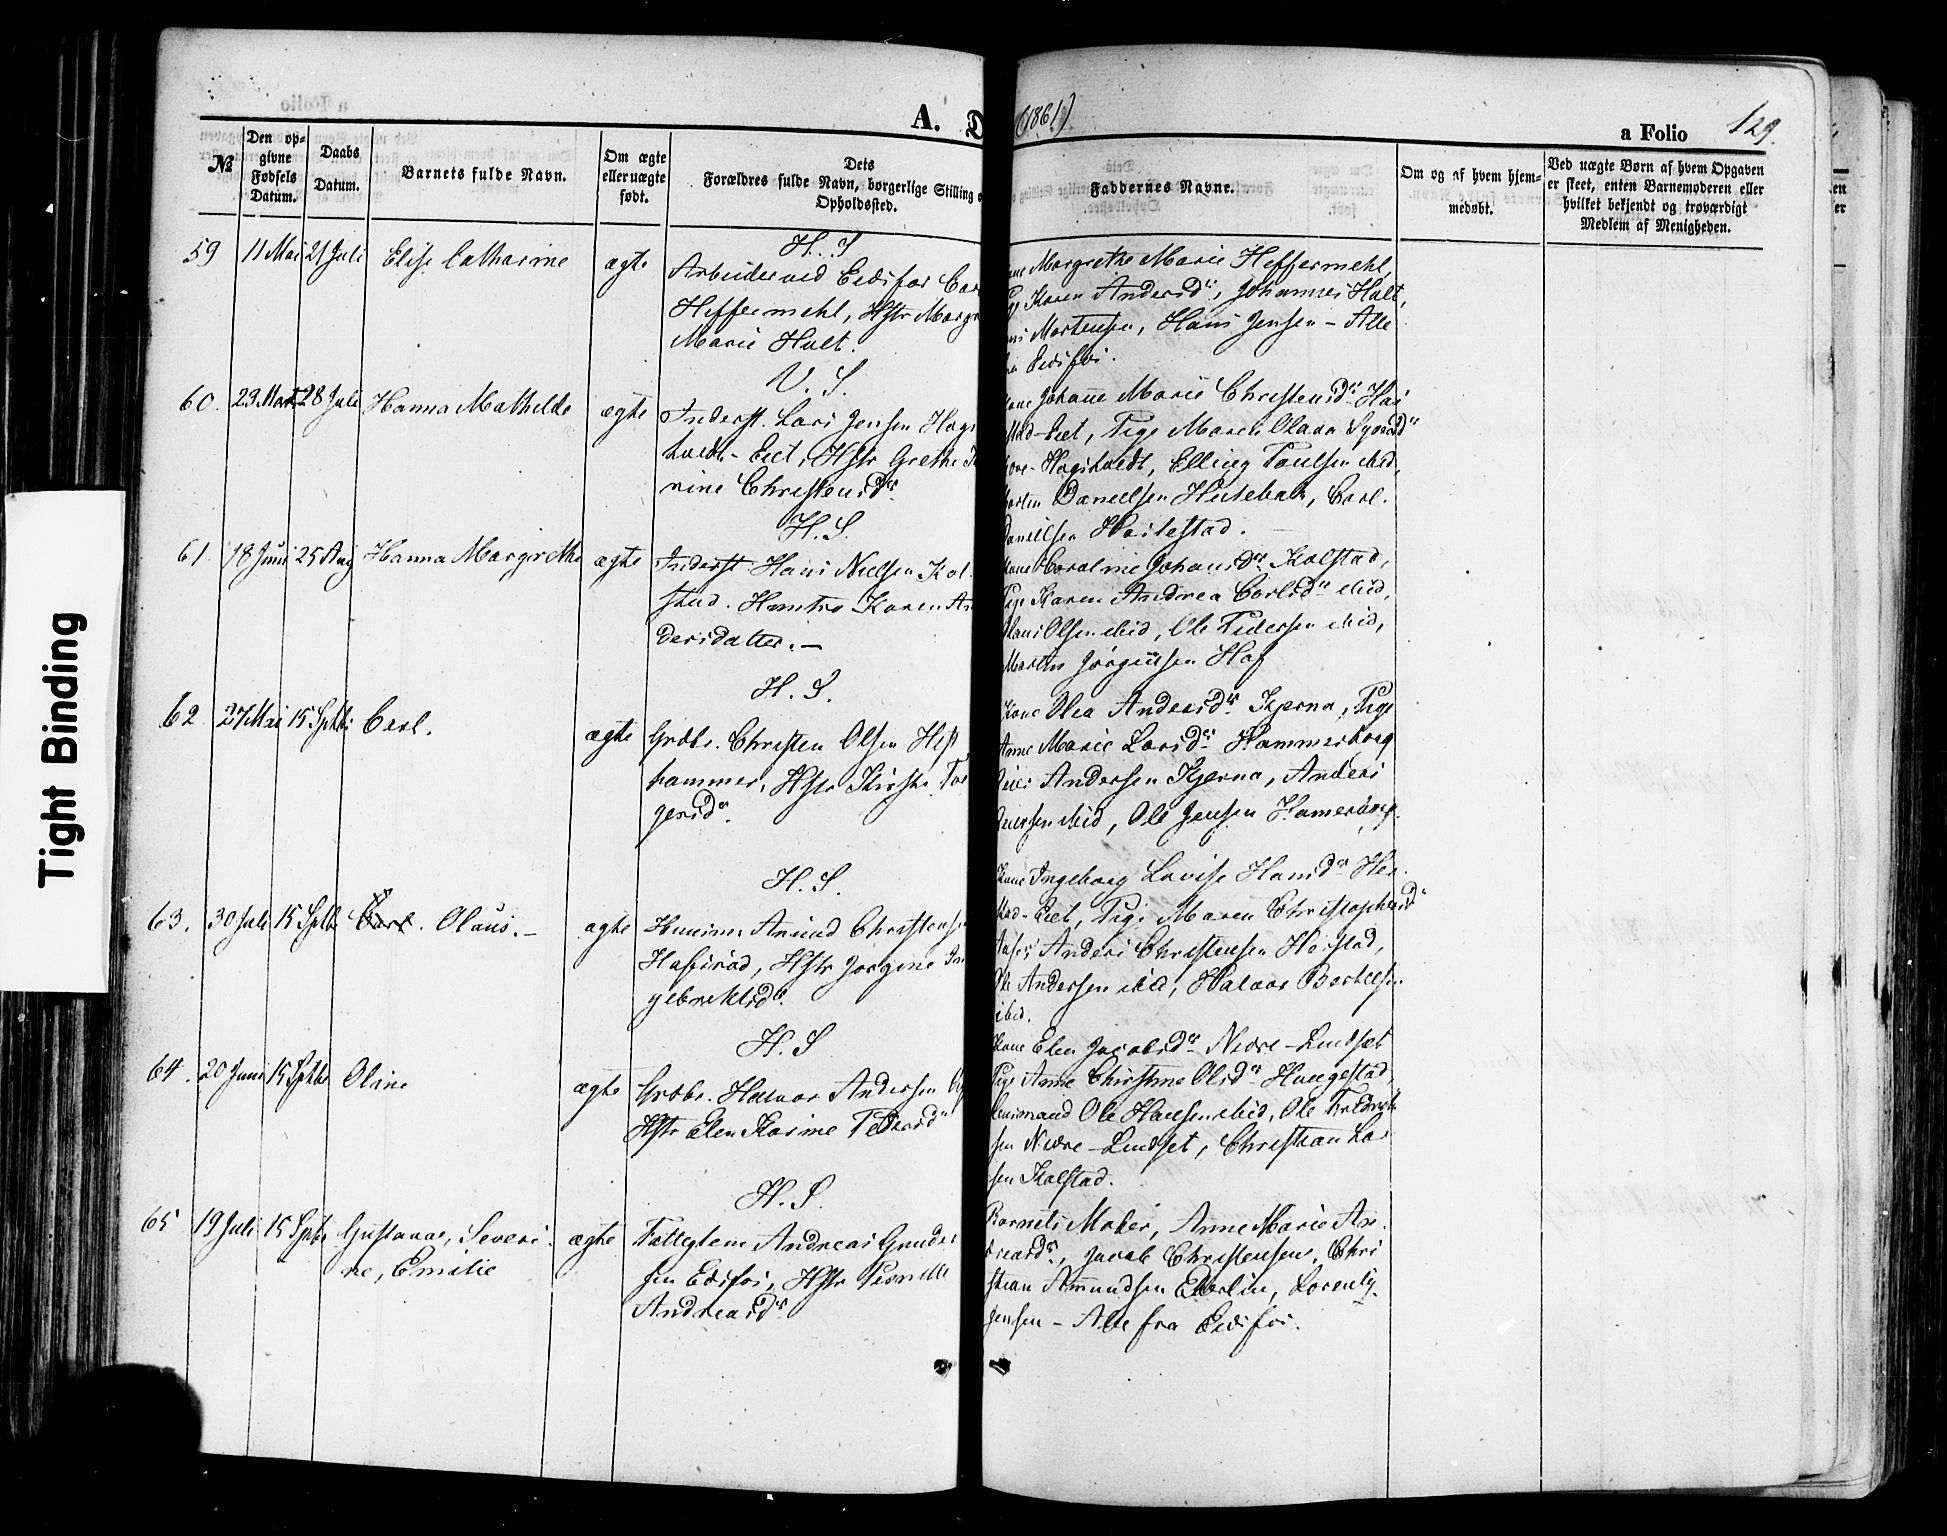 Tight Binding
A. D
(1861)
a Folio 129.
№
Den op-
givne
Fødsels
Datum.
Daabs
Datum.
Barnets fulde Navn.
Om ægte
eller uægte
født.
Dets
Forældres fulde Navn, borgerlige Stilling o
Opholdssted.
Faddernes Navne.
Om og af hvem hjem-
medøbt.
Ved uægte Børn af hvem Opgaven
er skeet, enten Barnemoderen eller
hvilket bekjendt og troværdigt
Medlem af Menigheden.
59 11 Mai 21 Juli Elise Catharine ægte
H. S
Arbeider ved Eidsfos Car
Heffermehl, Hstr Margr
Marie Holt.
Margrethe Marie Heffermehl,
Karen Andersdr, Johannes Holt,
Mortensen, Hans Jensen - Alle
Eidsfos.
60. 23. 28 Juli Hanna Mathilde ægte
V. S.
Inderst. Lars Jensen Hags
tvedt - Eiet, Hstr Grethe
rine Christensdr
Johanne Marie Christensdr
Eiet, Pige Maren Olava
Hagstvedt, Elling Paulsen ibid,
Danielsen Hvitebak, Carl.
Danielsen
61. 18 Juni 25 Aug Hanna Margrethe ægte
H. S.
Inderst Hans Nielsen Kol
stad. Hustro Karen An
dersdatter. —
Caroline Johansdr Kolstad,
Pige Karen Andrea Carlsdr ibid,
Hans Olsen ibid, Ole Pedersen ibid,
Martin Jörgensen Hof
62. 27 Mai 15 Septbr Carl. ægte
H. S.
Grdbr. Christen Olsen Hest
hammer, Hstr Kirstie Tor
gersdr.
Kone Olea Andersdr Kjerna, Pige
Anne Marie Larsdr Hammersborg
Andersen Kjerna, Anders
ibid, Ole Jensen
63. 30 Juli 15 Septbr Carl. Olaus. — ægte
H. S.
Huusmd Amund Christensen
Hafsröd, Hstr Jorgine In
gebrektsdr.
Kone Ingeborg Lovise Hansdr Her
stad - Eiet, Pige Maren Christophersdr
Anders Christensen Herstad,
Ole Andersen ibid, Halvor Bertelsen
ibid.
64. 20 Juni 15 Septbr Oline ægte
H. S
Grdbr. Halvor Andersen
Hstr Elen Karine Pedersdr
Kone Elen Jacobsdr Nedre - Lindset
Pige Anne Christine Olsdr Haugestad,
Ole Hansen ibid, Ole Fredrik
sen Nedre - Lindset, Christian Lar
sen Kolstad.
65 19 Juli 15 Septbr Gustava, Severi ægte
ne, Emilie
H. S.
Fattiglem Andreas Gunder
sen Eidsfos, Hstr Pernille
Andreasdr.
Barnets Moder, Anne Marie An
dreasdr, Jacob Christensen, Chri
stian Amundsen Lorentz
Jensen - Alle fra Eidsfos.